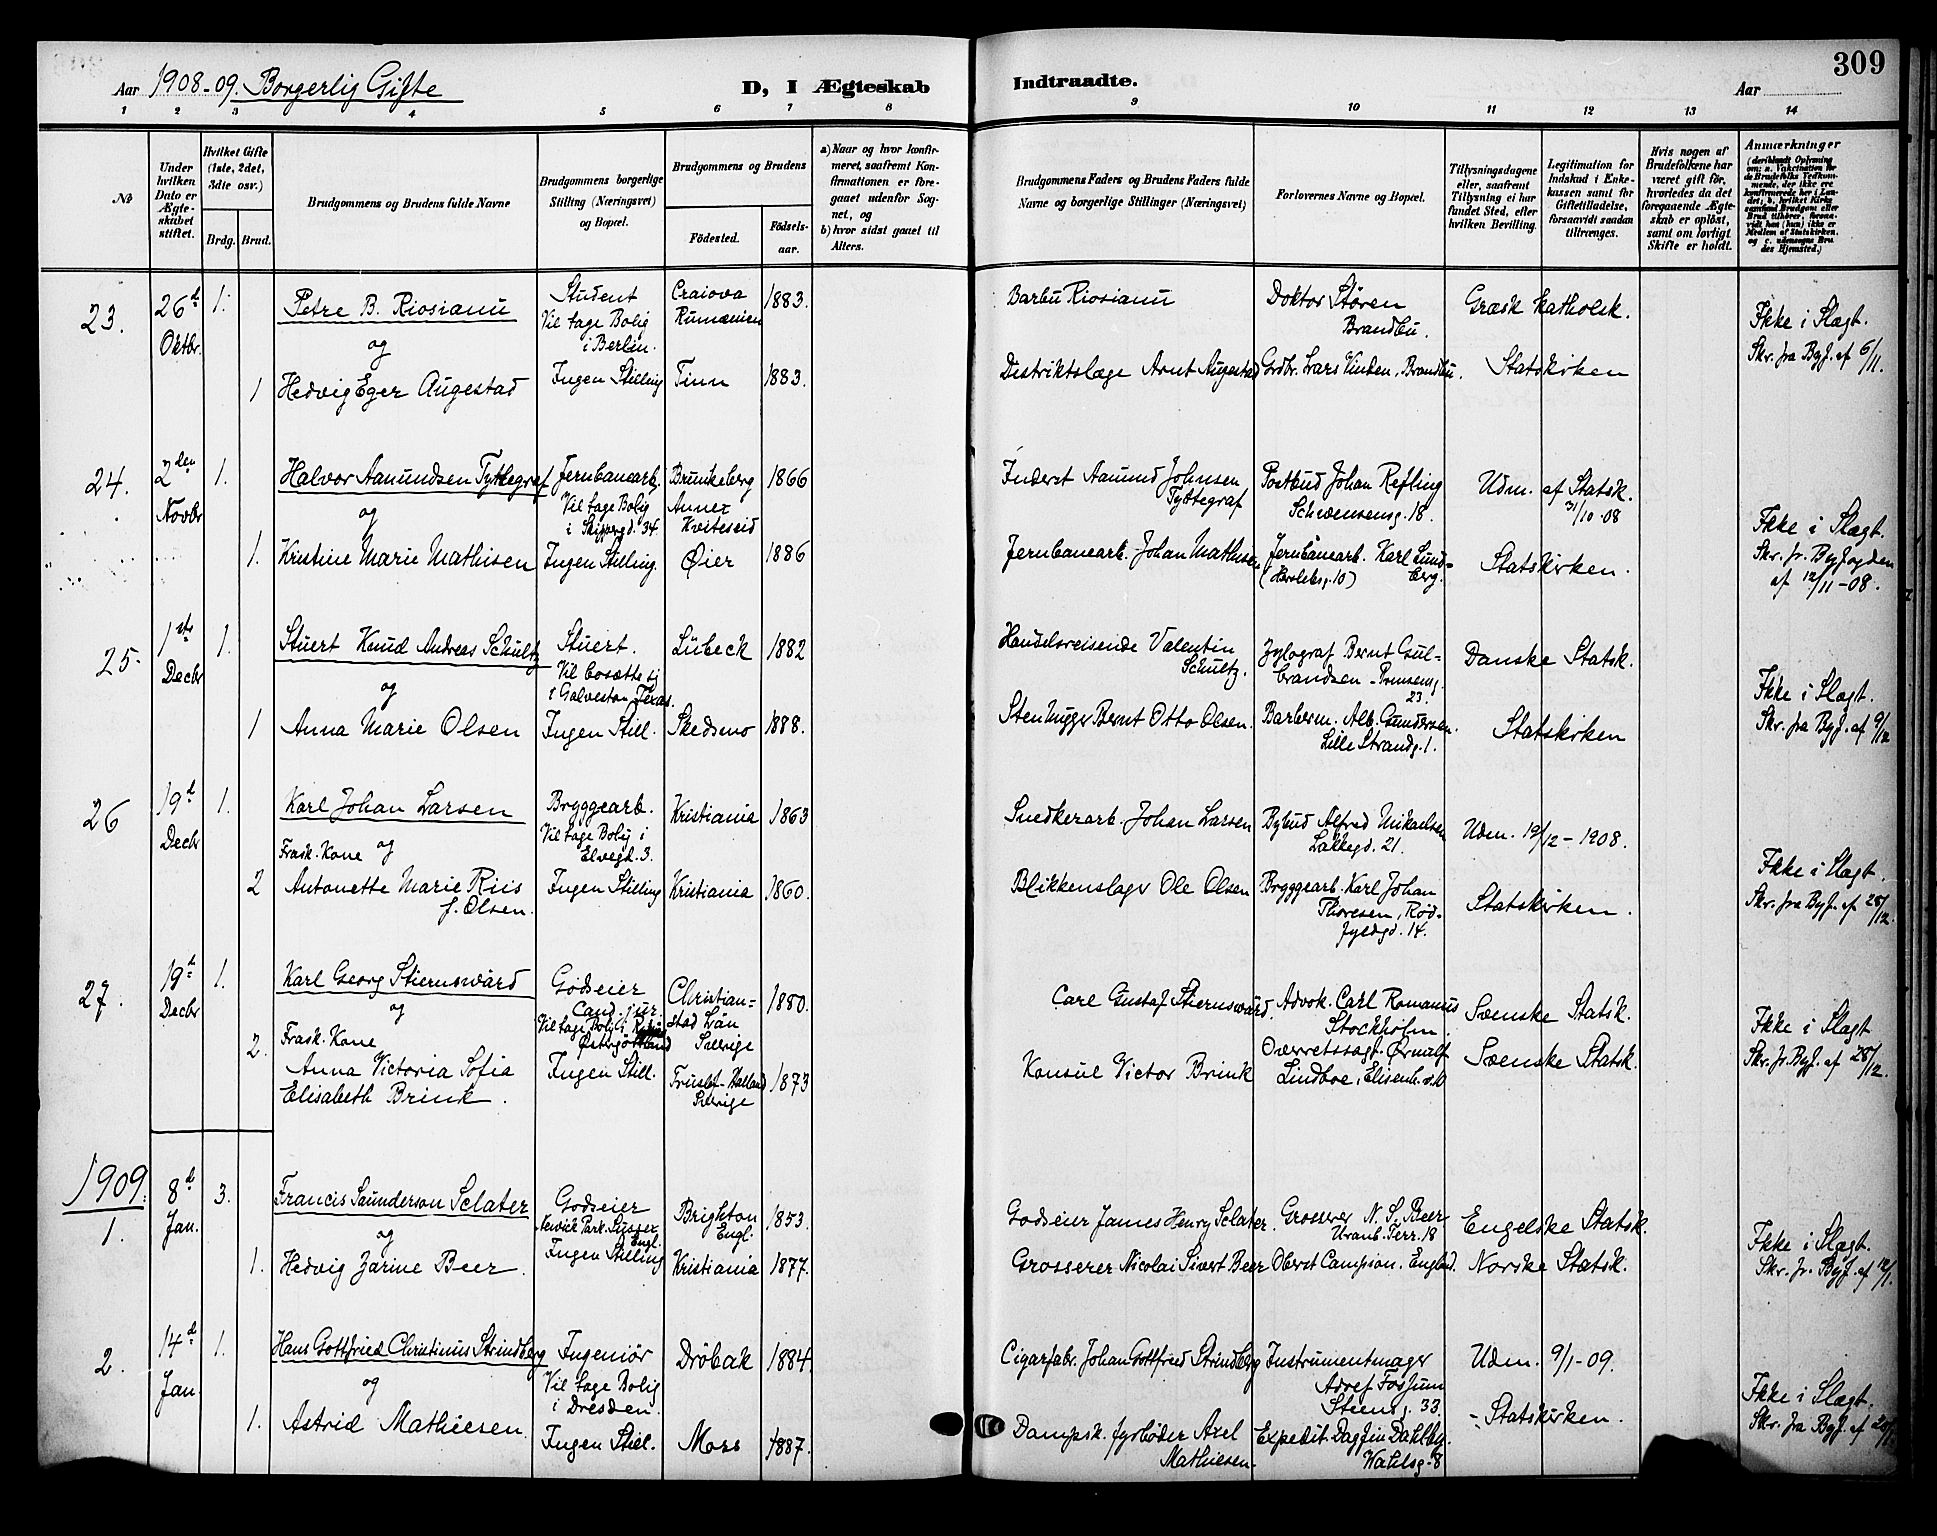 309
Aar 1908-09. Borgerlig Gifte
D, I Ægteskab
Indtraadte.
Aar
1 2 3 4 5 6 7 8 9 10 11 12 13 14
No
Under hvilken Dato er Ægteskabet stiftet.
Hvilket Gifte (1ste, 2det, 3die osv.)
Brdg. Brud.
Brudgommens og Brudens fulde Navne
Brudgommens borgerlige Stilling (Næringsvei) og Bopæl.
Brudgommens og Brudens
Fødested.
Fødselsaar.
a) Naar og hvor konfirmeret, saafremt Konfirmationen er foregaaet udenfor Sognet, og
b) hvor sidst gaaet til Alters.
Brudgommens Faders og Brudens Faders fulde Navne og borgerlige Stillinger (Næringsvei)
Forlovernes Navne og Bopæl.
Tillysningsdagene eller, saafremt Tillysning ei har fundet Sted, efter hvilken Bevilling.
Legitimation for Indskud i Enkekassen samt for Giftetilladelse, forsaavidt saadan tiltrænges.
Hvis nogen af Brudefolkene har været gift før, hvorledes da det foregaaende Ægteskab er opløst, samt om lovligt Skifte er holdt.
Anmærkninger
23.
26d Oktbr.
1.
Petre B. Riosianu
Student
Vil tage Bolig
i Berlin.
Craiova
Rumænien
1883.
Barbu Riosianu
Doktor Støren
Brandbu.
Græsk katholsk.
Ikke i Slægt.
Skr. fra Byf. af 6/11.
og
1 Hedvig Eger Augestad
Ingen Stilling
Tinn
1883.
Distriktslæge Arnt Augestad
Grdbr. Lars Vinden, Brandbu.
Statskirken
24.
2den Novbr
1.
Halvor Aamundsen Tyttegraf
Jernbanearb.
Vil tage Bolig
i Skipperg. 34.
Brunkeberg
Annex
Kviteseid
1866
Inderst Aamund Johnsen
Tyttegraf
Postbud Johan Refling
Schwensensg. 18.
Udm. af Statsk.
31/10-08
og
1. Kristine Marie Mathisen
Ingen Stilling.
Øier
1886
Jernbanearb. Johan Mathisen
Jernbanearb. Karl Lundberg.
(Heroldsg. 10)
Statskirken.
Ikke i Slægt.
Skr. fr. Byfogden
af 12/11-08.
25.
1ste Decbr
1.
Stuert Knud Andreas Schultz
Stuert.
Vil bosætte sig
i Galveston Texas.
Lübeck
1882
Handelsreisende Valentin
Schultz.
Xylograf Bernt Gulbrandsen - Prinsensg.
23.
Danske Statsk.
Ikke i Slægt.
Skr. fra Byf. af 9/12
og
1 Anna Marie Olsen
Ingen Still.
Skedsmo
1888.
Stenhugger Bernt Otto Olsen.
Barberm. Alb. Gundersen.
Lille Strandg. 1.
Statskirken
26
19d Decbr
1.
Karl Johan Larsen
Bryggearb.
Vil tage Bolig i
Elvegd. 3.
Kristiania
1863
Snedkerarb. Johan Larsen
Bybud Alfred Mikaelsen
Lakkegd. 21.
Udm. 19/12-1908.
Frask. Kone og
2 Antonette Marie Riis
f. Olsen.
Ingen Stilling
Kristiania
1860.
Blikkenslager Ole Olsen
Bryggearb. Karl Johan
Thoresen, Rødfyldgd. 14.
Statskirken.
Ikke i Slægt.
Skr. fra Byf. af 28/12.
27.
19d Decbr
1.
Karl Georg Stiernswärd
Godseier
Cand. jur.
Vil tage Bolig i
Østergötland
Christianstad Län
Sverige
1880.
Carl Gustaf Stiernswärd.
Advok. Carl Romanus
Stockholm.
Svenske Statsk.
og
Frask. Kone
2. Anna Victoria Sofia
Elisabeth Brink.
Ingen Still.
Halland
Sverige
1873
Konsul Victor Brink
Overretssagf. Ørnulf
Lindboe,
Svenske Statsk.
Ikke i Slægt
Skr. fr. Byf. af 28/12.
1909.
1.
8d Jan.
3.
Francis Saunderson Sclater
Godseier
Newick Park Sussex
Engl.
Brighton
Engl.
1853.
Godseier James Henry Sclater.
Grosserer N. S. Beer
Uranb. Terr. 18
Engelske Statsk.
og
1. Hedvig Zarine Beer.
Ingen Stilling
Kristiania
1877.
Grosserer Nicolai Sivert Beer
Oberst Campion, England.
Norske Statsk.
Ikke i Slægt.
Skr. fr. Byf. af 12/1.
2.
14d Jan.
1.
Hans Gottfried Christinius Strindberg
Ingeniør
Vil tage Bolig
i Dresden.
Drøbak
1884
Cigarfabr. Johan Gottfried Strindberg
Instrumentmager
Adolf Fossum
Steensg. 33.
Udm. 9/1-09.
og
1. Astrid Mathiesen.
Ingen Still.
Moss
1887.
Dampsk. fyrbøder Axel
Mathiesen.
Expedit. Dagfin Dahlby.
Wahlsg. 8
- Statskirken.
Ikke i Slægt.
Skr. fra Byf. af